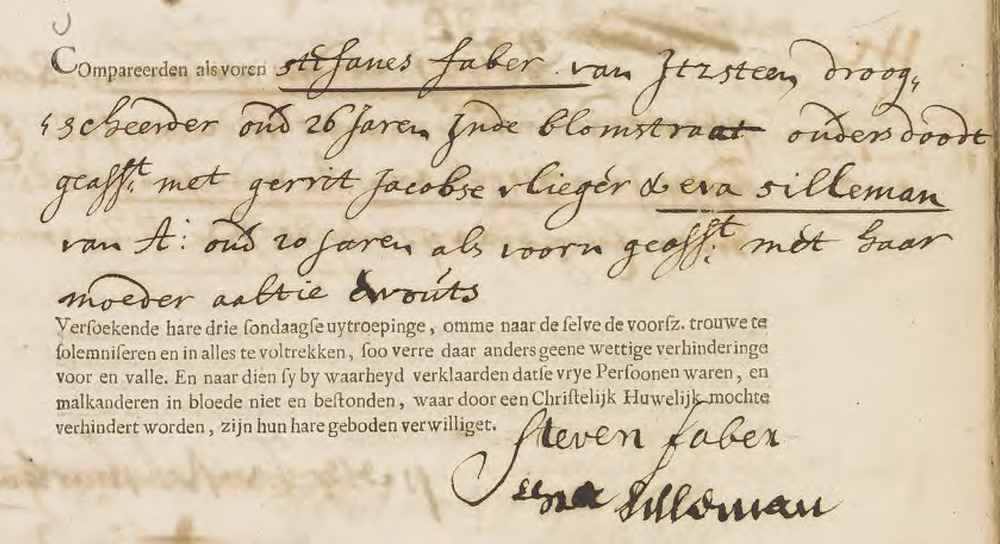 Compareerden als voren stefanes faber van Itzsteen, droog„
„scheerder oud 26 Jaren Inde blomstraat ouders doodt
geasst. met gerrit Jacobse vlieger & eva silleman
van A: oud 20 Jaren als voorn geasst. met haar
moeder aaltie Ewouts
Verſoekende hare drie ſondaagſe uytroepinge, omme naar de ſelve de voorſz. trouwe te
ſolemniſeren en in alles te voltrekken, ſoo verre daar anders geene wettige verhinderinge
voor en valle. En naar dien ſy by waarheyd verklaarden datſe vrye Perſoonen waren, en
malkanderen in bloede niet en beſtonden, waar door een Chriſtelijk Huwelijk mochte
verhindert worden, zijn hun hare geboden verwilliget.
Steven faber
silleman